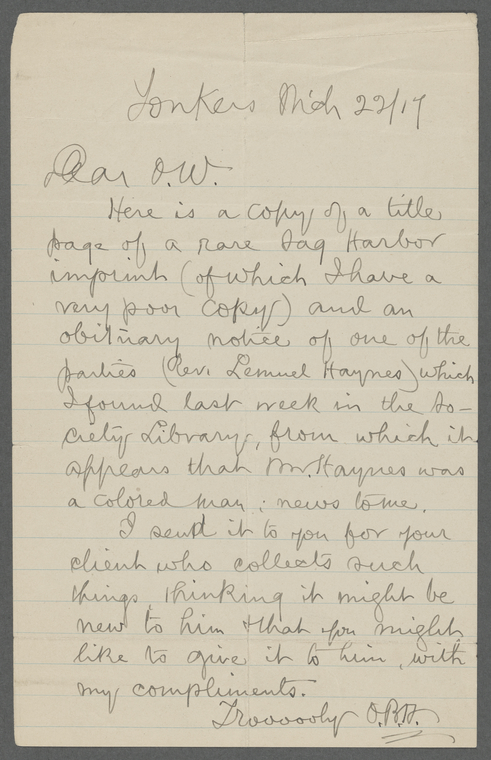 Yonkers Mch 22/17
Dear O.W.
Here is a copy of a title
page of a rare Sag Harbor
imprint (of which I have a
very poor copy) and an
obituary notice of one of the
parties (Rev. Lemuel Haynes) which
I found last week in the So-
ciety Library, from which it
appears that Mr. Haynes was
a colored man; news to me.
I send it to you for your
client who collects such
things, thinking it might be
new to him & that you might
like to give it to him, with
my compliments.
Troooooly